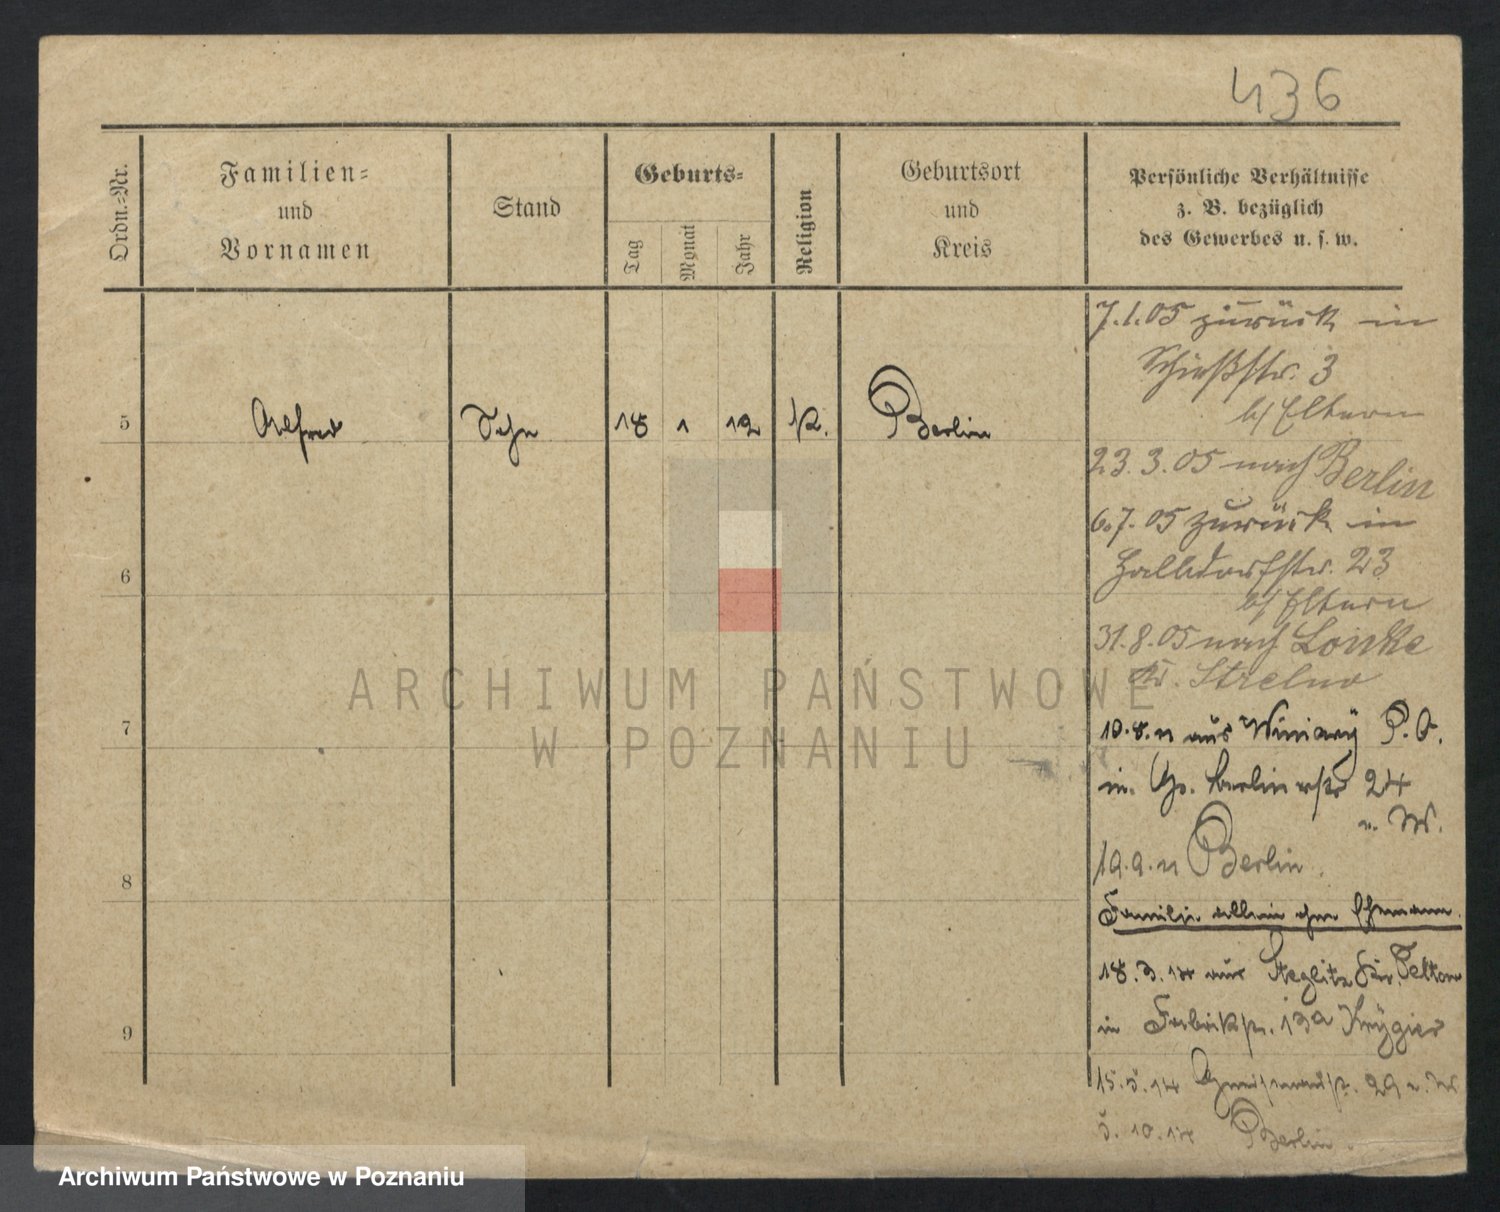 436
Ordn.-Nr.
Familien-
und
Vornamen
Stand
Geburts-
Tag
Monat
Jahr
Religion
Geburtsort
und
Kreis
Persönliche Verhältnisse
z. B. bezüglich
des Gewerbes u. s. w.
7.1.05 zurück in
Schießstr. 3
b/ Eltern
5 Alfred Sohn 18 1 12 k. Berlin
23.3.05 nach Berlin
6.7.05 zurück in
str. 23
b/ Eltern
31.8.05 nach Lonke
Kr. Strelno
6
7
8
9
10.8.11 aus Winiary P. O.
in Gr. Berlinerstr 24
v. W.
19.9.11 Berlin.
Familie allein ohne Ehemann.
18.3.14 aus Steglitz Kr. Teltow
in Fabrikstr. 13a Krygier
15.5.14 Gneisenaustr. 29 v. W.
5.10.14 Berlin.
ARCHIWUM PAŃSTWOWE
W POZNANIU
Archiwum Państwowe w Poznaniu